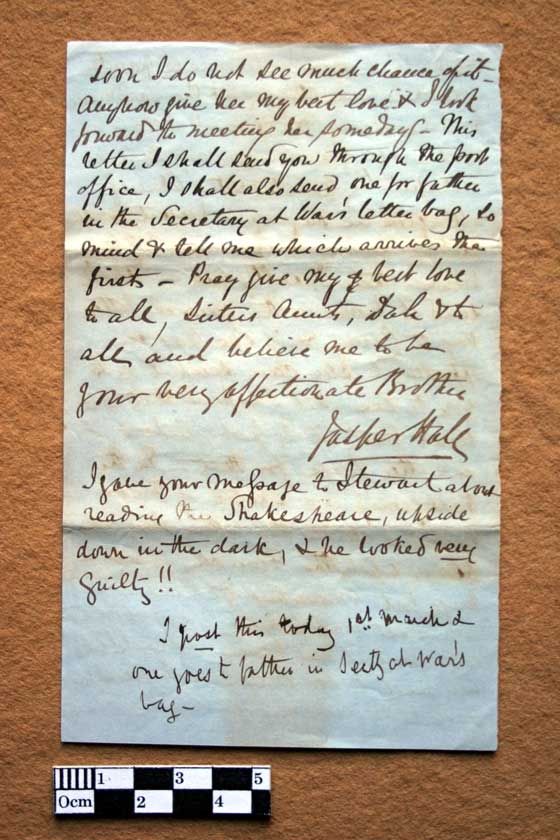 soon I do not see much chance of it -
Anyhow give her my best love & I look
forward to meeting her someday - This
letter I shall send you through the post
office, I shall also send one for father
in the Secretary at War's letter bag, so
mind & tell me which arrives the
first - Pray give my best love
to all, Sisters Aunts, & to
all, and believe me to be
your very affectionate Brother
Jasper Hall
I gave your message to Stewart about
reading the Shakespeare, upside
down in the dark, & he looked very
guilty!!
I post this today 1st March &
one goes to father in Secty at War's
bag -
1 3 5
0cm 2 4